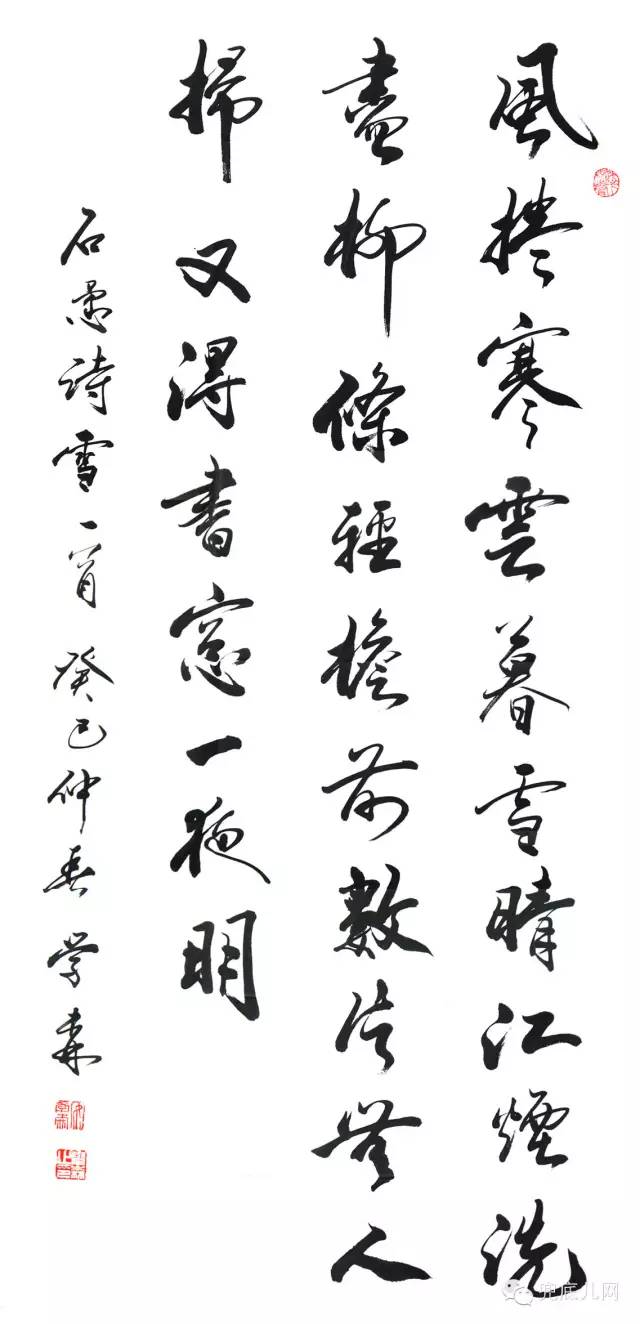 風捲寒雲暮雪晴江煙洗
盡柳條輕檐前數片無人
掃又得書窓一夜明
石愚詩雪一首 癸巳仲春 学森
兜底儿网